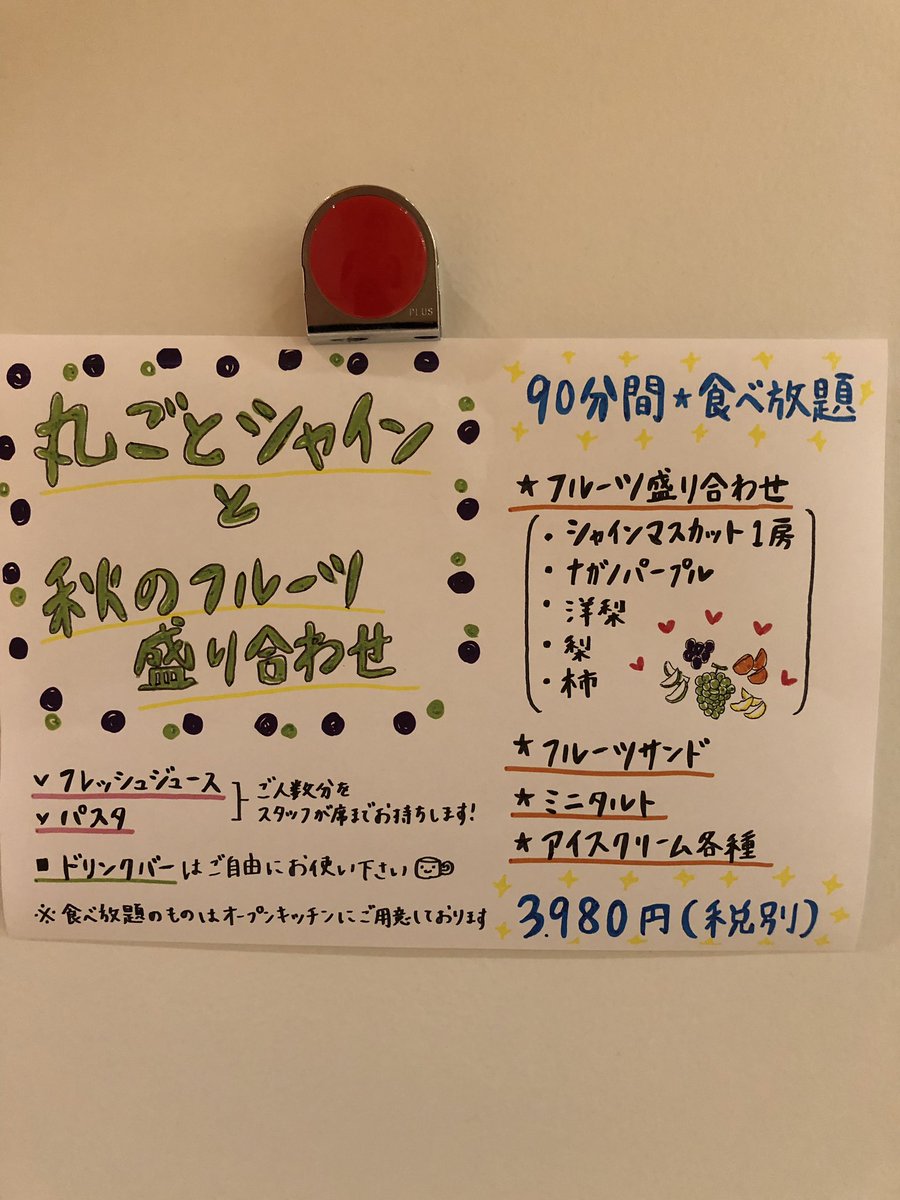 PLUS
丸ごとシャイン
と
秋のフルーツ
盛り合わせ
✓ フレッシュジュース
✓ パスタ
ご人数分を
スタッフが席までお持ちします!
■ ドリンクバーはご自由にお使い下さい
※ 食べ放題のものはオープンキッチンにご用意しております
90分間★食べ放題
★ フルーツ盛り合わせ
・シャインマスカット1房
・ナガノパープル
・洋梨
・梨
・柿
★ フルーツサンド
★ ミニタルト
★ アイスクリーム各種
3.980円(税別)